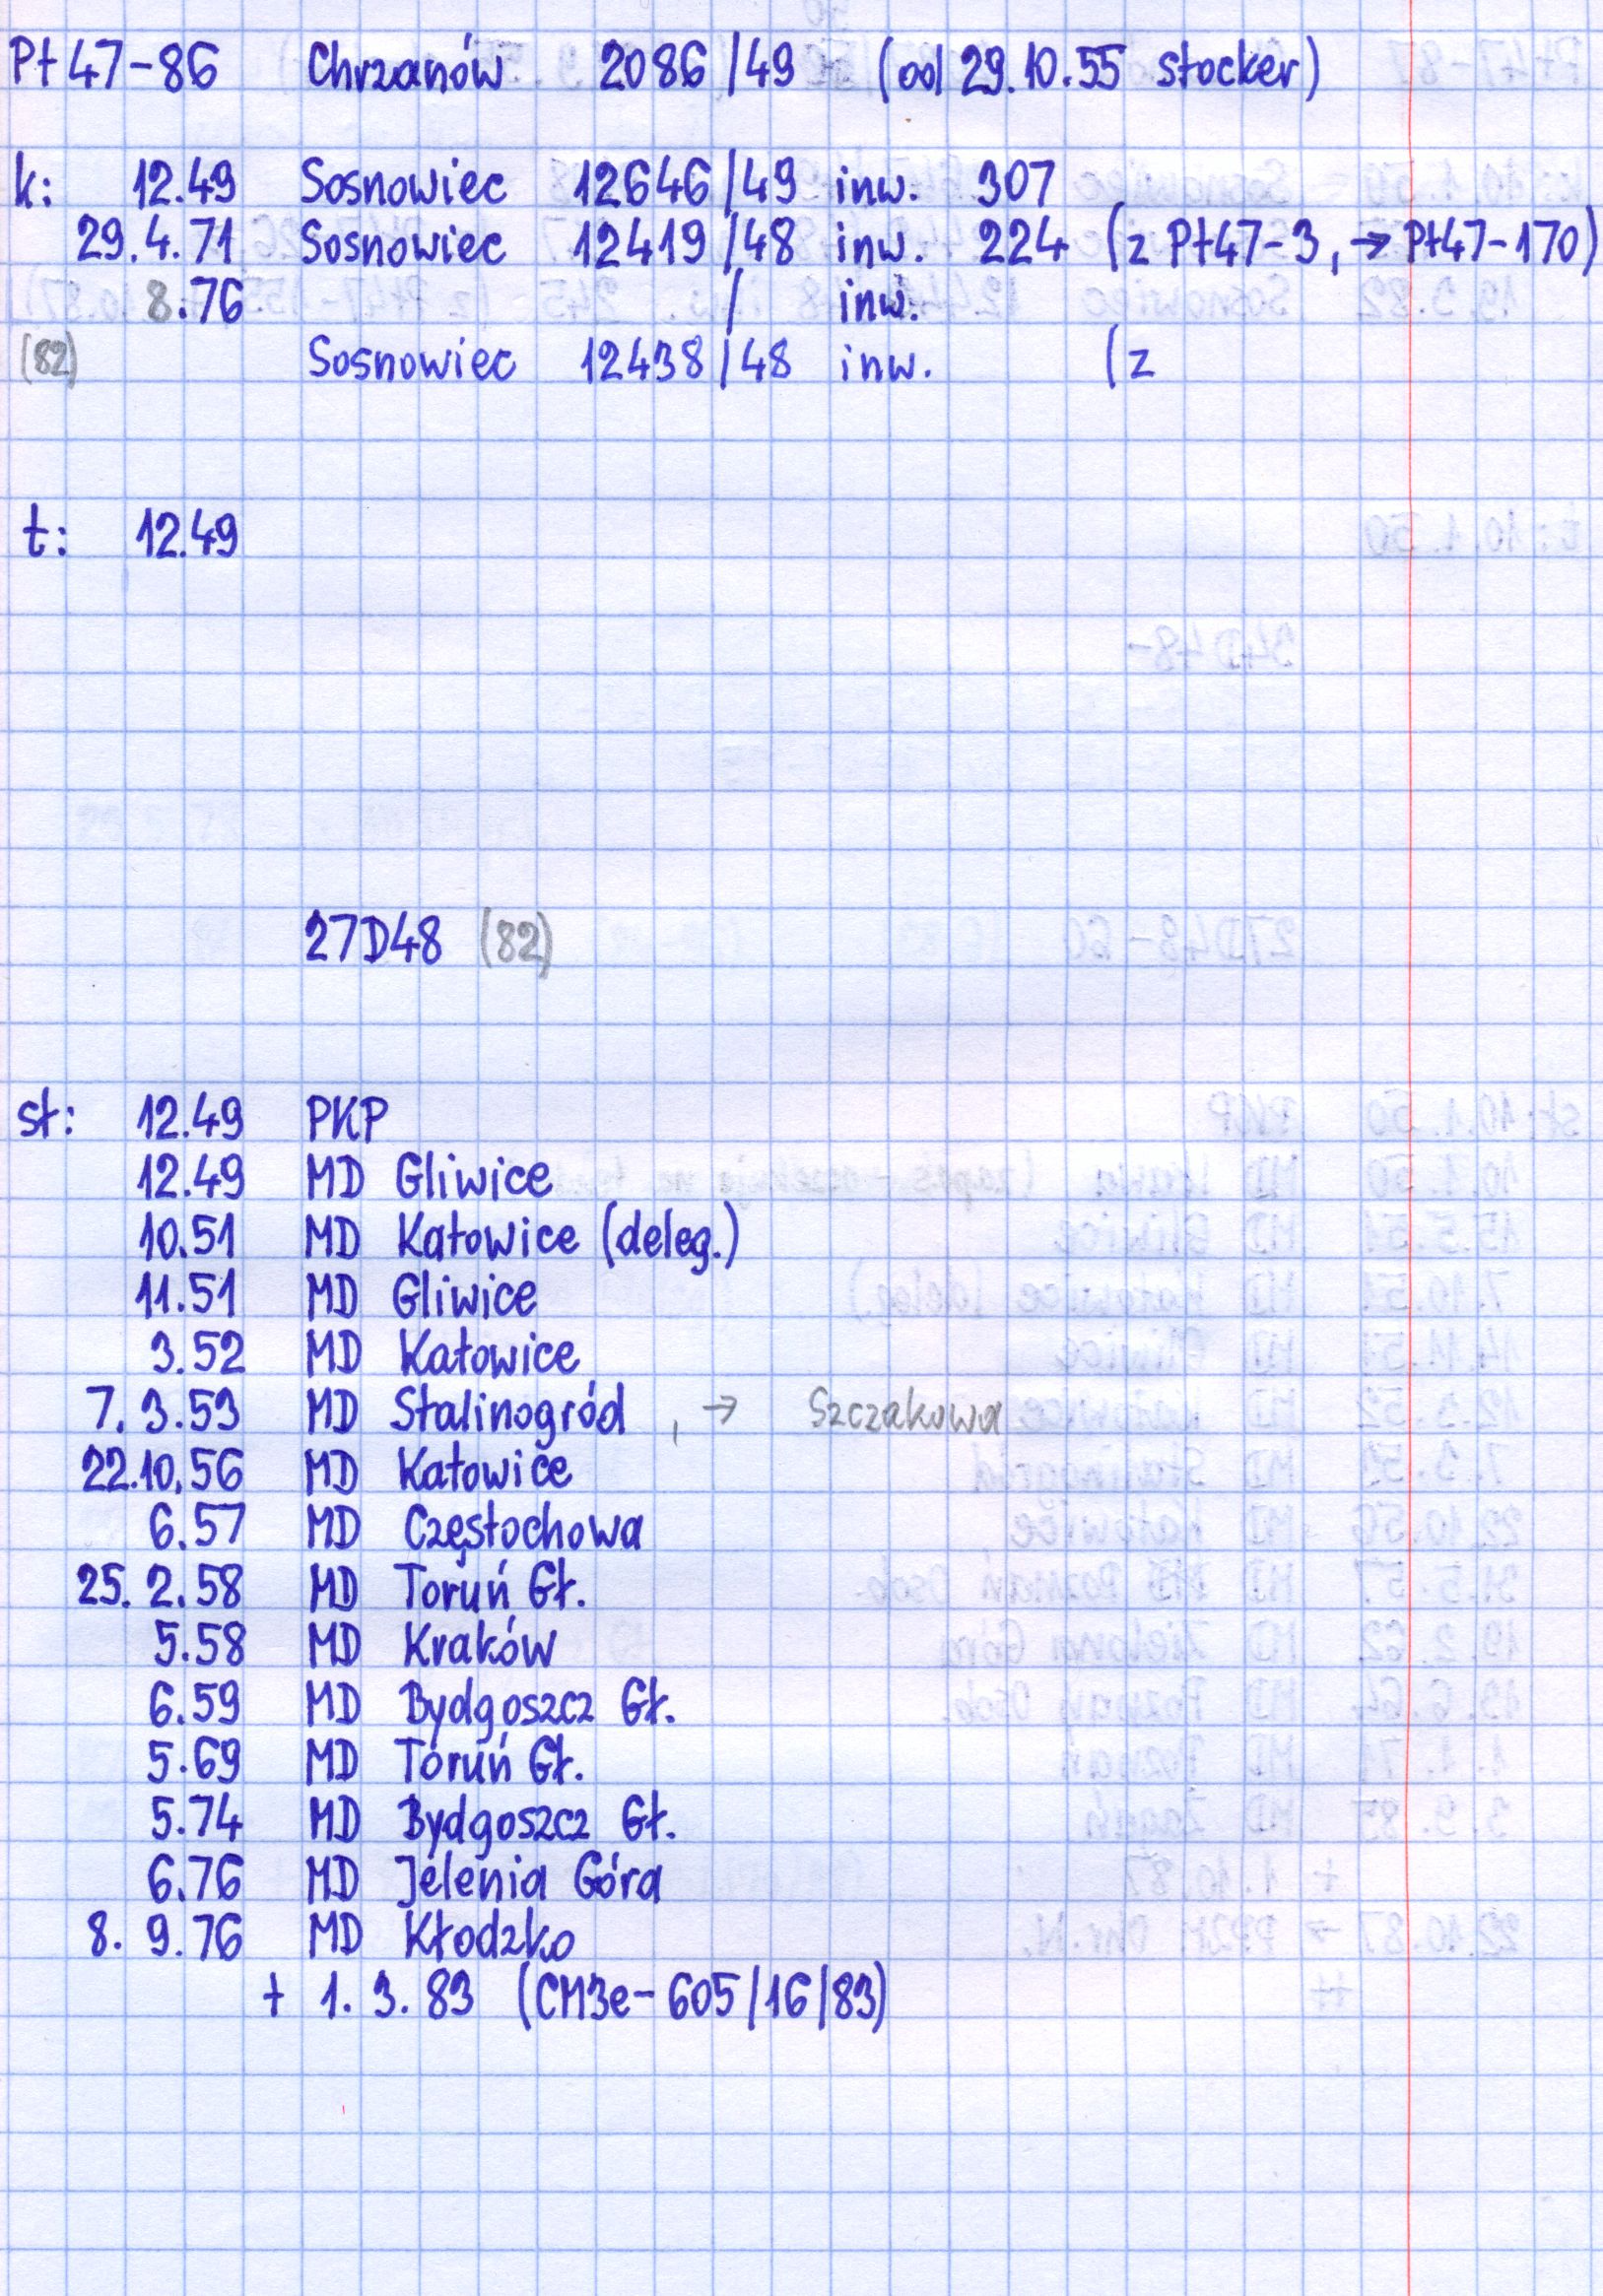 Pt47-86 Chrzanów 2086/49 (od 29.10.55 stocker)
k: 12.49 Sosnowiec 12646/49 inw. 307
29.4.71 Sosnowiec 12419/48 inw. 224 (z Pt47-3, → Pt47-170)
8.76 / inw.
(82) Sosnowiec 12438/48 inw. (z
t: 12.49
27D48 (82)
st: 12.49 PKP
12.49 MD Gliwice
10.51 MD Katowice (deleg.)
11.51 MD Gliwice
3.52 MD Katowice
7.3.53 MD Stalinogród , → Szczakowa
22.10.56 MD Katowice
6.57 MD Częstochowa
25.2.58 MD Toruń Gł.
5.58 MD Kraków
6.59 MD Bydgoszcz Gł.
5.69 MD Toruń Gł.
5.74 MD Bydgoszcz Gł.
6.76 MD Jelenia Góra
8.9.76 MD Kłodzko
+ 1.3.83 (CM3e-605/16/83)